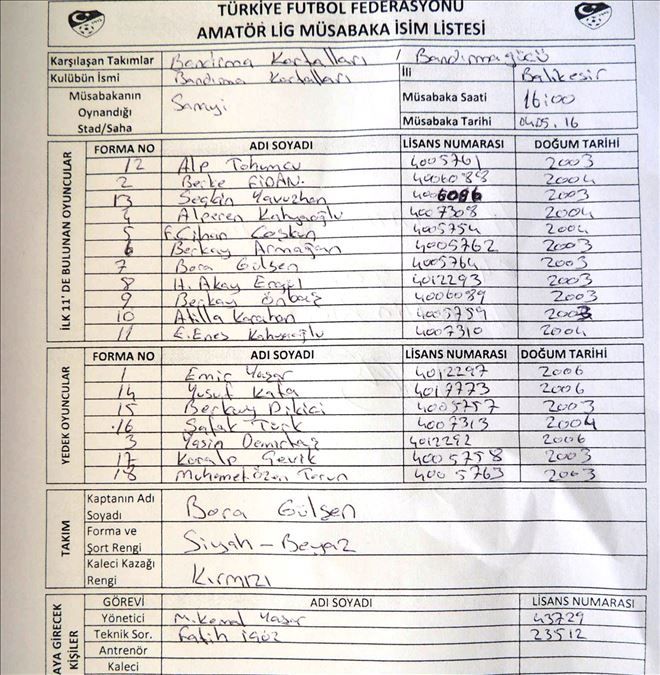 TÜRKİYE FUTBOL FEDERASYONU
AMATÖR LİG MÜSABAKA İSİM LİSTESİ
Karşılaşan Takımlar Bandırma Kartalları / Bandırmagücü
Kulübün İsmi Bandırma Kartalları İli Balıkesir
Müsabakanın Oynandığı Stad/Saha Sanayi Müsabaka Saati 16:00
Müsabaka Tarihi 04.05.16
İLK 11' DE BULUNAN OYUNCULAR
FORMA NO ADI SOYADI LİSANS NUMARASI DOĞUM TARİHİ
12 Alp Tohumcu 4005761 2003
2 Berke FİDAN. 4006088 2004
13 Seçkin Yavuzhan 4006086 2003
4 Alperen Kahyaoğlu 4007308 2004
5 F.Cihan Coşkun 4005754 2004
6 Berkay Armağan 4005762 2003
7 Bora Gülşen 4005764 2003
8 H. Akay Ersel 4012293 2003
9 Berkay Önbaş 4006089 2003
10 Atilla Karahan 4005759 2003
11 E.Enes Kahyaoğlu 4007310 2004
YEDEK OYUNCULAR
FORMA NO ADI SOYADI LİSANS NUMARASI DOĞUM TARİHİ
1 Emir Yaşar 4012297 2006
14 Yusuf Kaya 4017773 2006
15 Berkay Dikici 4005757 2003
16 Şafak Türk 4007313 2004
3 Yasin Demirbaş 4012292 2006
17 Koralp Çevik 4005758 2003
18 Muhamet Özen Torun 4005763 2003
TAKIM
Kaptanın Adı Soyadı Bora Gülşen
Forma ve Şort Rengi Siyah - Beyaz
Kaleci Kazağı Rengi Kırmızı
AYA GİRECEK KİŞİLER
GÖREVİ ADI SOYADI LİSANS NUMARASI
Yönetici M.Kemal Yaşar 43729
Teknik Sor. Fatih İgöz 23512
Antrenör
Kaleci